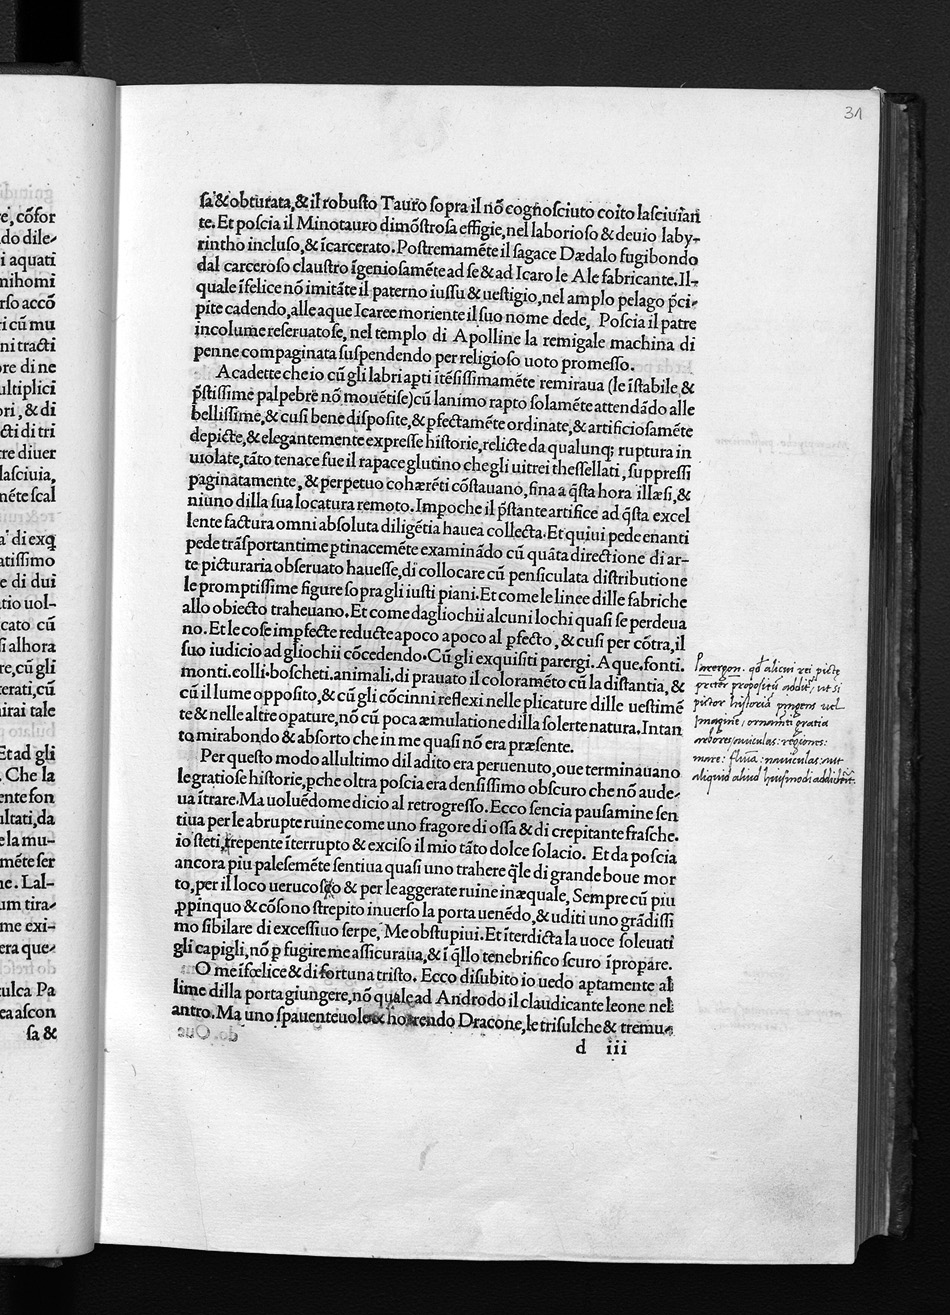 31
sa & obturata, & il robusto Tauro sopra il nõ cognosciuto coito lasciuian
te. Et poscia il Minotauro dimõstrosa effigie, nel laborioso & deuio laby-
rintho incluso, & ĩcarcerato. Postremamẽte il sagace Dædalo fugibondo
dal carceroso claustro ĩgeniosamẽte ad se & ad Icaro le Ale fabricante. Il-
quale ĩfelice nõ imitãte il paterno iussu & uestigio, nel amplo pelago p̃ci-
pite cadendo, alle aque Icaree moriente il suo nome dede, Poscia il patre
incolume reseruatose, nel templo di Apolline la remigale machina di
penne compaginata suspendendo per religioso uoto promesso.
Acadette che io cũ gli labri apti ĩtẽsissimamẽte remiraua (le ĩstabile &
p̃stissime palpebre nõ mouẽtise) cũ lanimo rapto solamẽte attendãdo alle
bellissime, & cusi bene disposite, & ꝑfectamẽte ordinate, & artificiosamẽte
depicte, & elegantemente expresse historie, relicte da qualunq; ruptura in
uiolate, tãto tenace fue il rapace glutino che gli uitrei thessellati, suppressi
paginatamente, & perpetuo cohærẽti cõstauano, fina a q̃sta hora illæsi, &
niuno dilla sua locatura remoto. Impoche il p̃stante artifice ad q̃sta excel
lente factura omni absoluta diligẽtia hauea collecta. Et quiui pede enanti
pede trãsportantime ꝑtinacemẽte examinãdo cũ quãta directione di ar-
te picturaria obseruato hauesse, di collocare cũ pensiculata distributione
le promptissime figure sopra gli iusti piani. Et come le linee dille fabriche
allo obiecto traheuano. Et come dagliochii alcuni lochi quasi se perdeua
no. Et le cose imꝑfecte reducte apoco apoco al ꝑfecto, & cusi per cõtra, il
suo iudicio ad gliochii cõcedendo. Cũ gli exquisiti parergi. Aque. fonti.
monti. colli. boscheti. animali. di prauato il coloramẽto cũ la distantia, &
cũ il lume opposito, & cũ gli cõcinni reflexi nelle plicature dille uestimẽ
te & nelle altre opature, nõ cũ poca æmulatione dilla solerte natura. Intan
to mirabondo & absorto che in me quasi nõ era præsente.
Per questo modo allultimo dil adito era peruenuto, oue terminauano
le gratiose historie, ꝑche oltra poscia era densissimo obscuro che nõ aude-
ua ĩtrare. Ma uoluẽdome dicio al retrogresso. Ecco sencia pausamine sen
tiua per le abrupte ruine come uno fragore di ossa & di crepitante frasche.
io steti, repente ĩterrupto & exciso il mio tãto dolce solacio. Et da poscia
ancora piu palesemẽte sentiua quasi uno trahere q̃le di grande boue mor
to, per il loco uerucoso & per le aggerate ruine inæquale, Sempre cũ piu
ꝓpinquo & cõsono strepito inuerso la porta uenẽdo, & uditi uno grãdissi
mo sibilare di excessiuo serpe, Me obstupiui. Et ĩterdicta la uoce soleuati
gli capigli, nõ ꝑ fugire me assicuraua, & ĩ q̃llo tenebrifico scuro ĩpropare.
O me ĩfœlice & di fortuna tristo. Ecco disubito io uedo aptamente al
lime dilla porta giungere, nõ quale ad Androdo il claudicante leone nel
antro. Ma uno spauenteuole & horrendo Dracone, le trisulche & tremu-
d iii
Parergon. qd alicui rei pictę
preter propositũ additr, ut si
pictor historiã pingens uel
Imaginẽ, ornamti gratia
arbores, auiculas: regiones:
mare: flluia: nauiculas: aut
aliquid aliud huiusmodi addiderit.
re, cõfor
do dile-
i aquati
mihomi
rso accõ
ri cũ mu
ni tracti
ore di ne
ultiplici
ori, & di
cti di tri
tre diuer
lasciuia,
nẽte scal
a di exq
atissimo
e di dui
tio uol-
cato cũ
si alhora
re, cũ gli
terati, cũ
nirai tale
Et ad gli
. Che la
ente fon
ultati, da
e la mu-
mẽte ser
ne. Lal-
um tira-
me exi-
era que-
ulca Pa
ea ascon
sa &